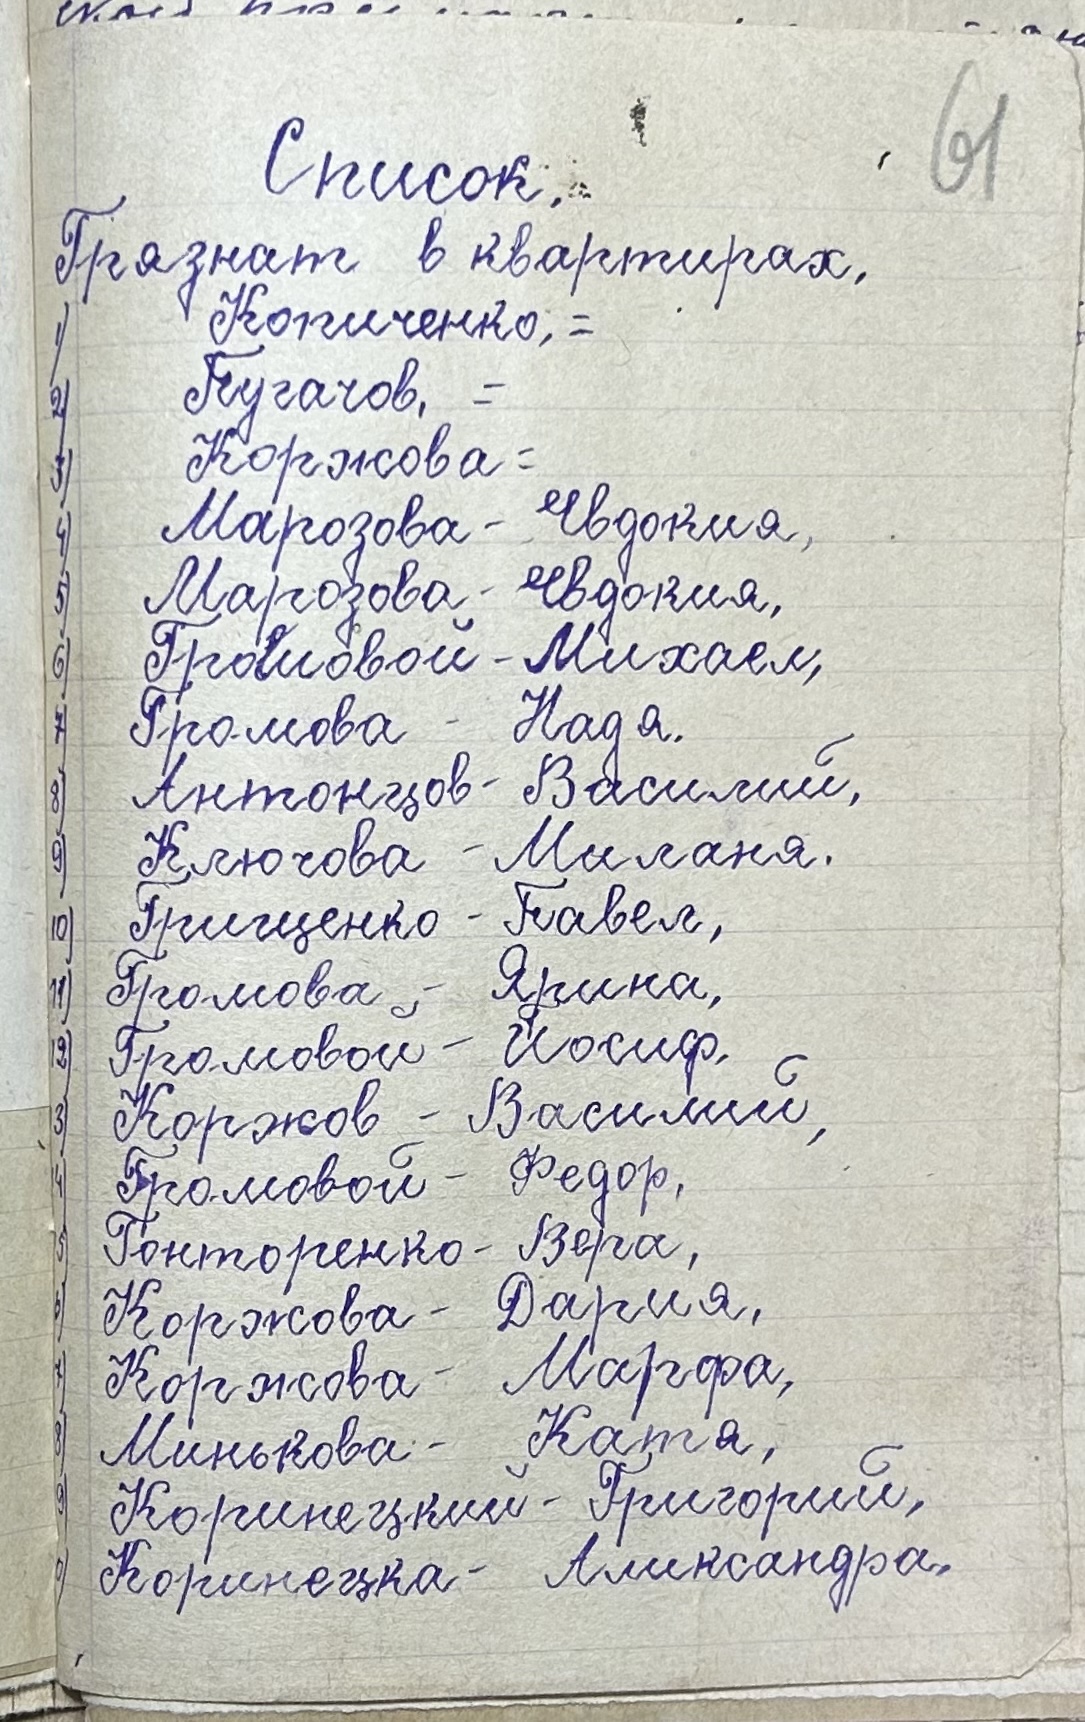 61
Список.
Грязнат в квартирах,
1) Копиченко, =
2) Пугачов, =
3) Коржова =
4) Марозова - Евдокия,
5) Марозова - Евдокия,
6) Громовой - Михаел,
7) Громова - Надя.
8) Антонцов - Василий,
9) Ключова - Миланя.
10) Грищенко - Павел,
11) Громова - Ярина,
12) Громовой - Йосиф.
3) Коржов - Василий,
4) Громовой - Федор,
5) Гонторенко - Вера,
6) Коржова - Дария,
7) Коржова - Марфа,
8) Минькова - Катя,
9) Коринецкий - Григорий,
0) Коринецка - Александра.